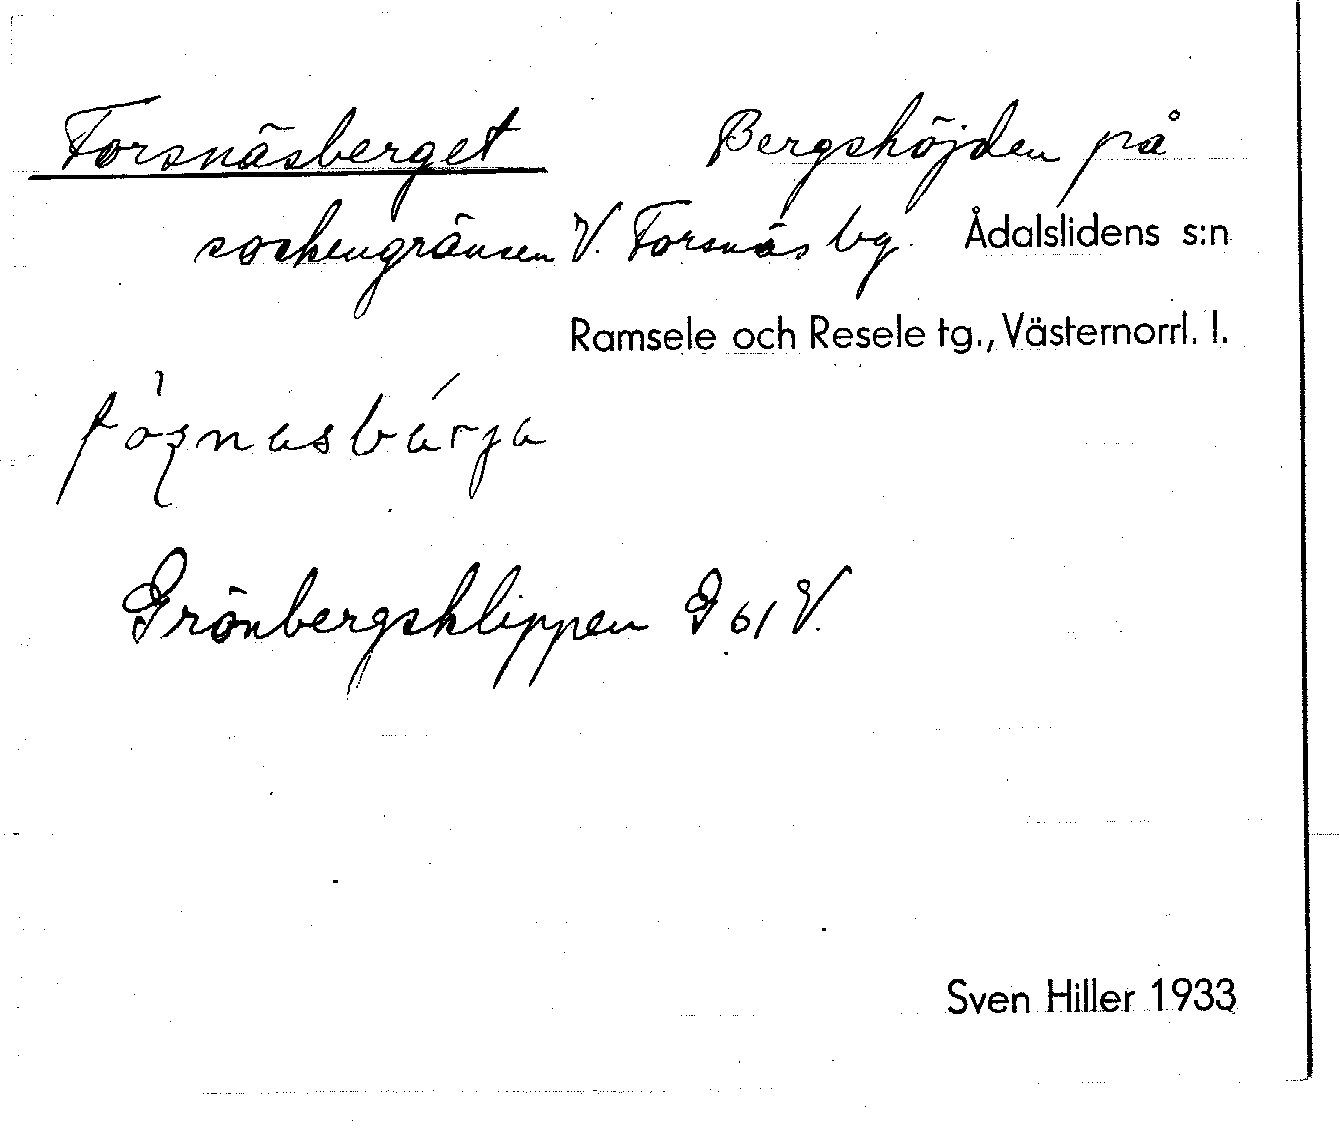 Forsnäsberget Bergshöjden på
sockengränsen V. Forsnäs by. Ådalslidens s:n
Ramsele och Resele tg., Västernorrl. l.
Grönbergsklippen G 61 V.
Sven Hiller 1933